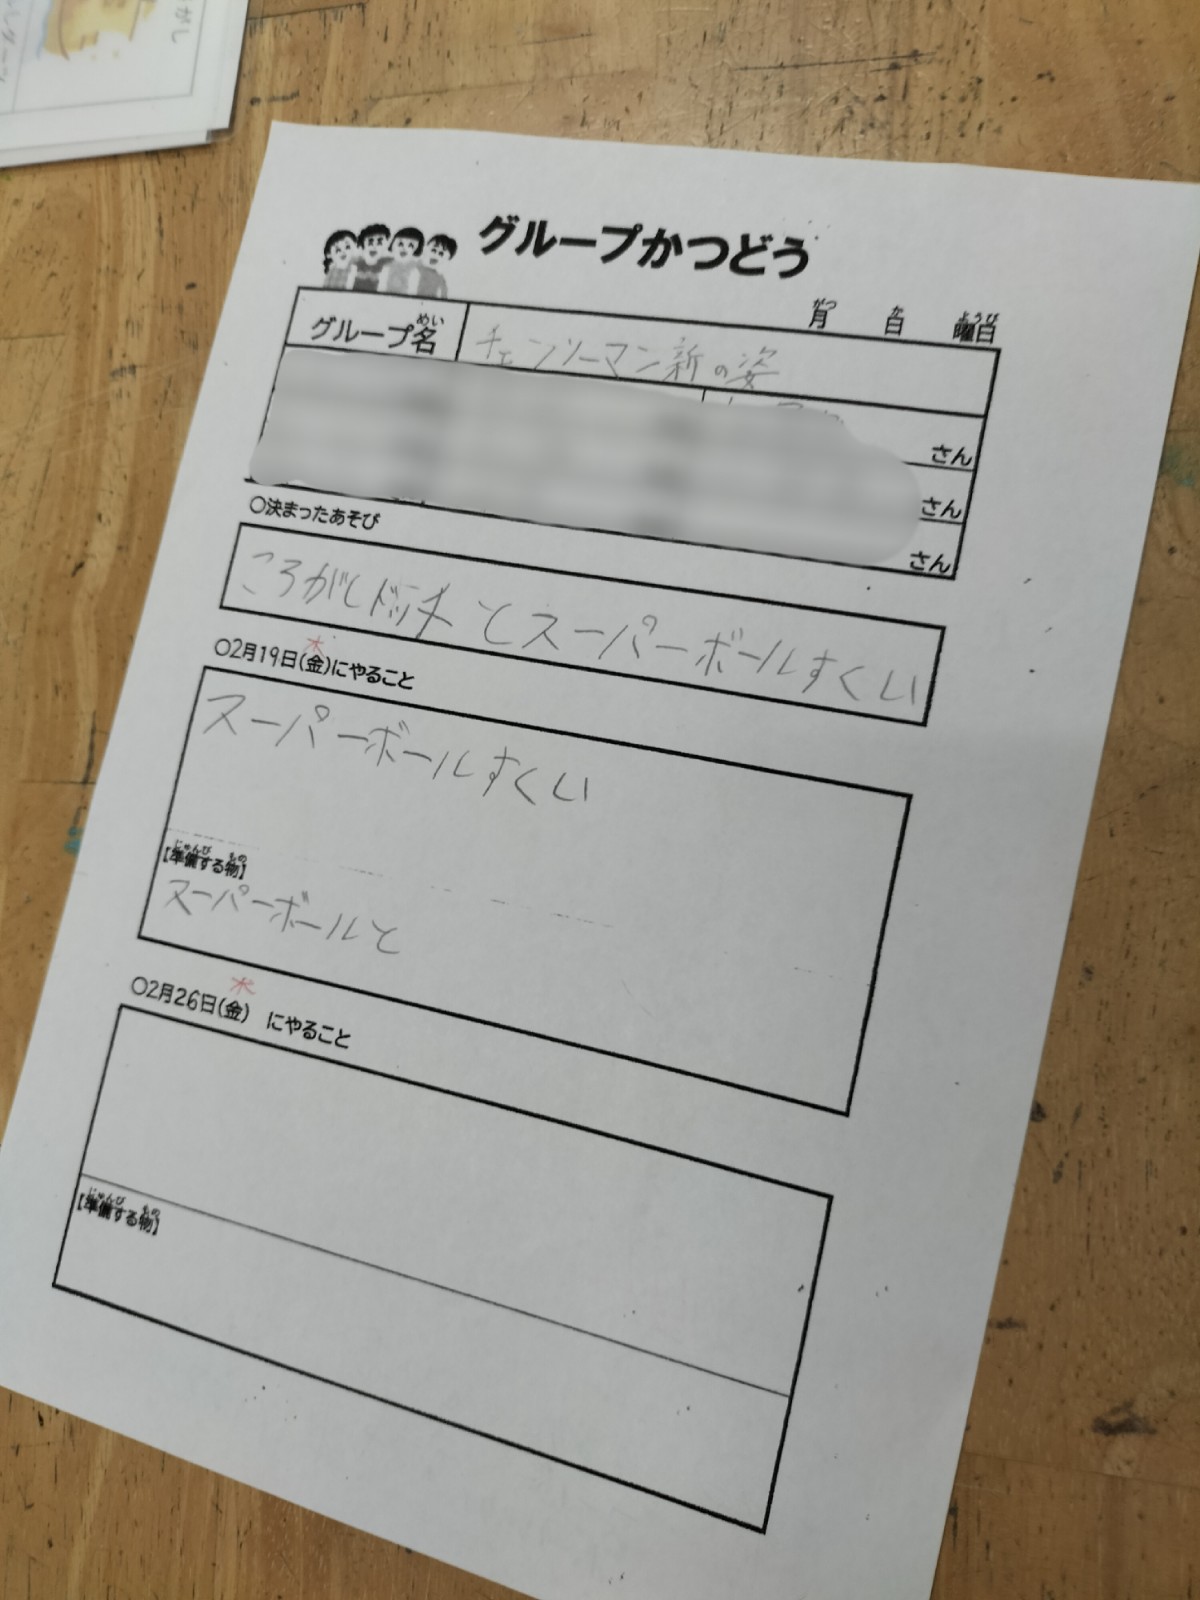 グループかつどう
月 日 曜日
がつ にち ようび
グループ名
めい
チェンソーマン新の姿
さん
さん
さん
〇決まったあそび
ころがしドッチ とスーパーボールすくい
木
〇2月19日(金)にやること
スーパーボールすくい
じゅんび もの
【準備する物】
スーパーボールと
木
〇2月26日(金) にやること
じゅんび もの
【準備する物】